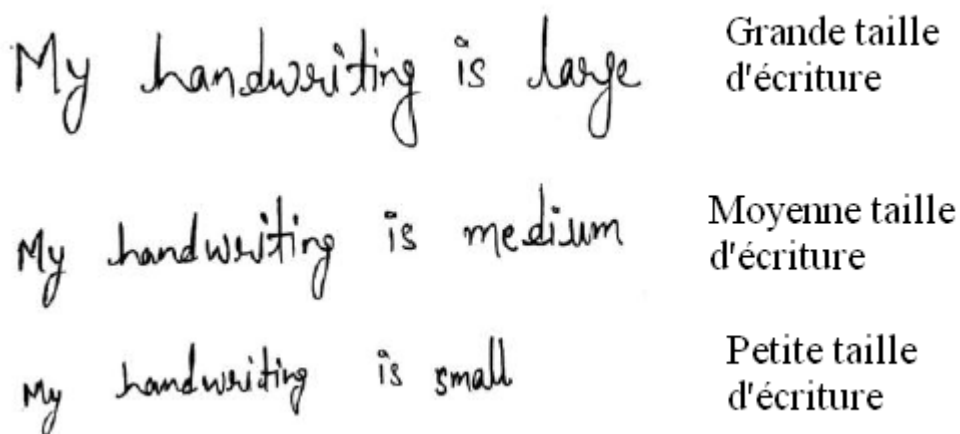 My handwriting is large
Grande taille
d'écriture
My handwriting is medium
Moyenne taille
d'écriture
My handwriting is small
Petite taille
d'écriture